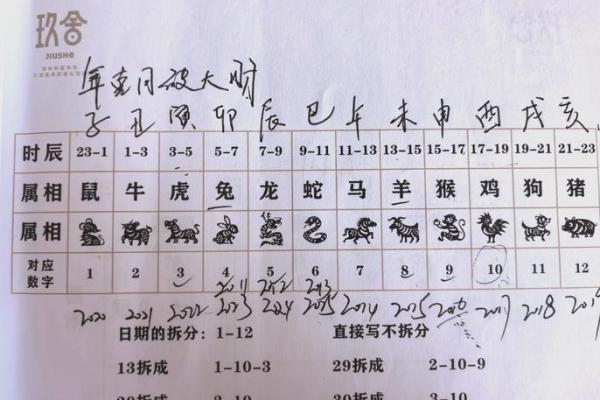 玖舍
JIUSHE
年克月破大财
子 丑 寅 卯 辰 巳 午 未 申 酉 戌 亥
时辰 23-1 1-3 3-5 5-7 7-9 9-11 11-13 13-15 15-17 17-19 19-21 21-23
属相 鼠 牛 虎 兔 龙 蛇 马 羊 猴 鸡 狗 猪
属相
对应数字 1 2 3 4 5 6 7 8 9 10 11 12
2011 2012 2013
2020 2021 2022 2023 2024 2025 2014 2015 2016 2017 2018 2019
日期的拆分：1-12 直接写不拆分
13拆成 1-10-3 29拆成 2-10-9
30拆成 3-10